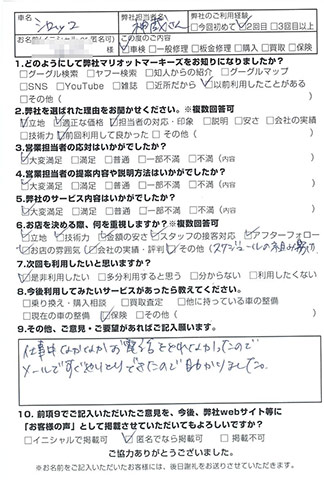 車名
シロッコ
弊社担当者名
神原さん
弊社のご利用経験
□今回初めて ☑2回目 □3回目以上
お名前(イニシャル・匿名可)
ご用命
☑車検 □一般修理 □板金修理 □購入 □買取 □保険
1.どのようにして弊社マリオットマーキーズをお知りになりましたか?
□グーグル検索 □ヤフー検索 □知人からの紹介 □グーグルマップ
□SNS □YouTube □雑誌 □近所だから ☑以前利用したことがある
□その他( )
2.弊社を選ばれた理由をお聞かせください。※複数回答可
☑立地 ☑適正な価格 ☑担当者の対応・印象 □説明 □安さ □会社の実績
□技術力 ☑前回利用して良かった □その他( )
3.営業担当者の応対はいかがでしたか?
☑大変満足 □満足 □普通 □一部不満 □不満(内容 )
4.営業担当者の提案内容や説明方法はいかがでしたか?
☑大変満足 □満足 □普通 □一部不満 □不満(内容 )
5.弊社のサービス内容はいかがでしたか?
☑大変満足 □満足 □普通 □一部不満 □不満(内容 )
6.お店を決める際、何を重視しますか?※複数回答可
☑立地 ☑技術力 ☑金額の安さ ☑スタッフの接客対応 ☑アフターフォロー
□お店の雰囲気 □会社の実績・評判 ☑その他(スケジュールの
7.次回も利用したいと思いますか?
☑是非利用したい □多分利用すると思う □分からない □利用したくない
8.今後利用してみたいサービスがあったら教えてください。
□乗り換え・購入相談 □買取査定 □他に持っている車の整備
□現在の車の整備 ☑保険 □その他( )
9.その他、ご意見・ご要望があればご記入願います。
仕事中なかなかお電話をとれなかったので
メールですぐやりとりできたので助かりました。
10.前項9でご記入いただいたご意見を、今後、弊社webサイト等に
「お客様の声」として掲載させていただいてもよろしいですか?
□イニシャルで掲載可 ☑匿名でなら掲載可 □掲載不可
ご協力ありがとうございました。
※お名前をご記入いただいたお客様には、後日謝礼をお送りさせていただきます。